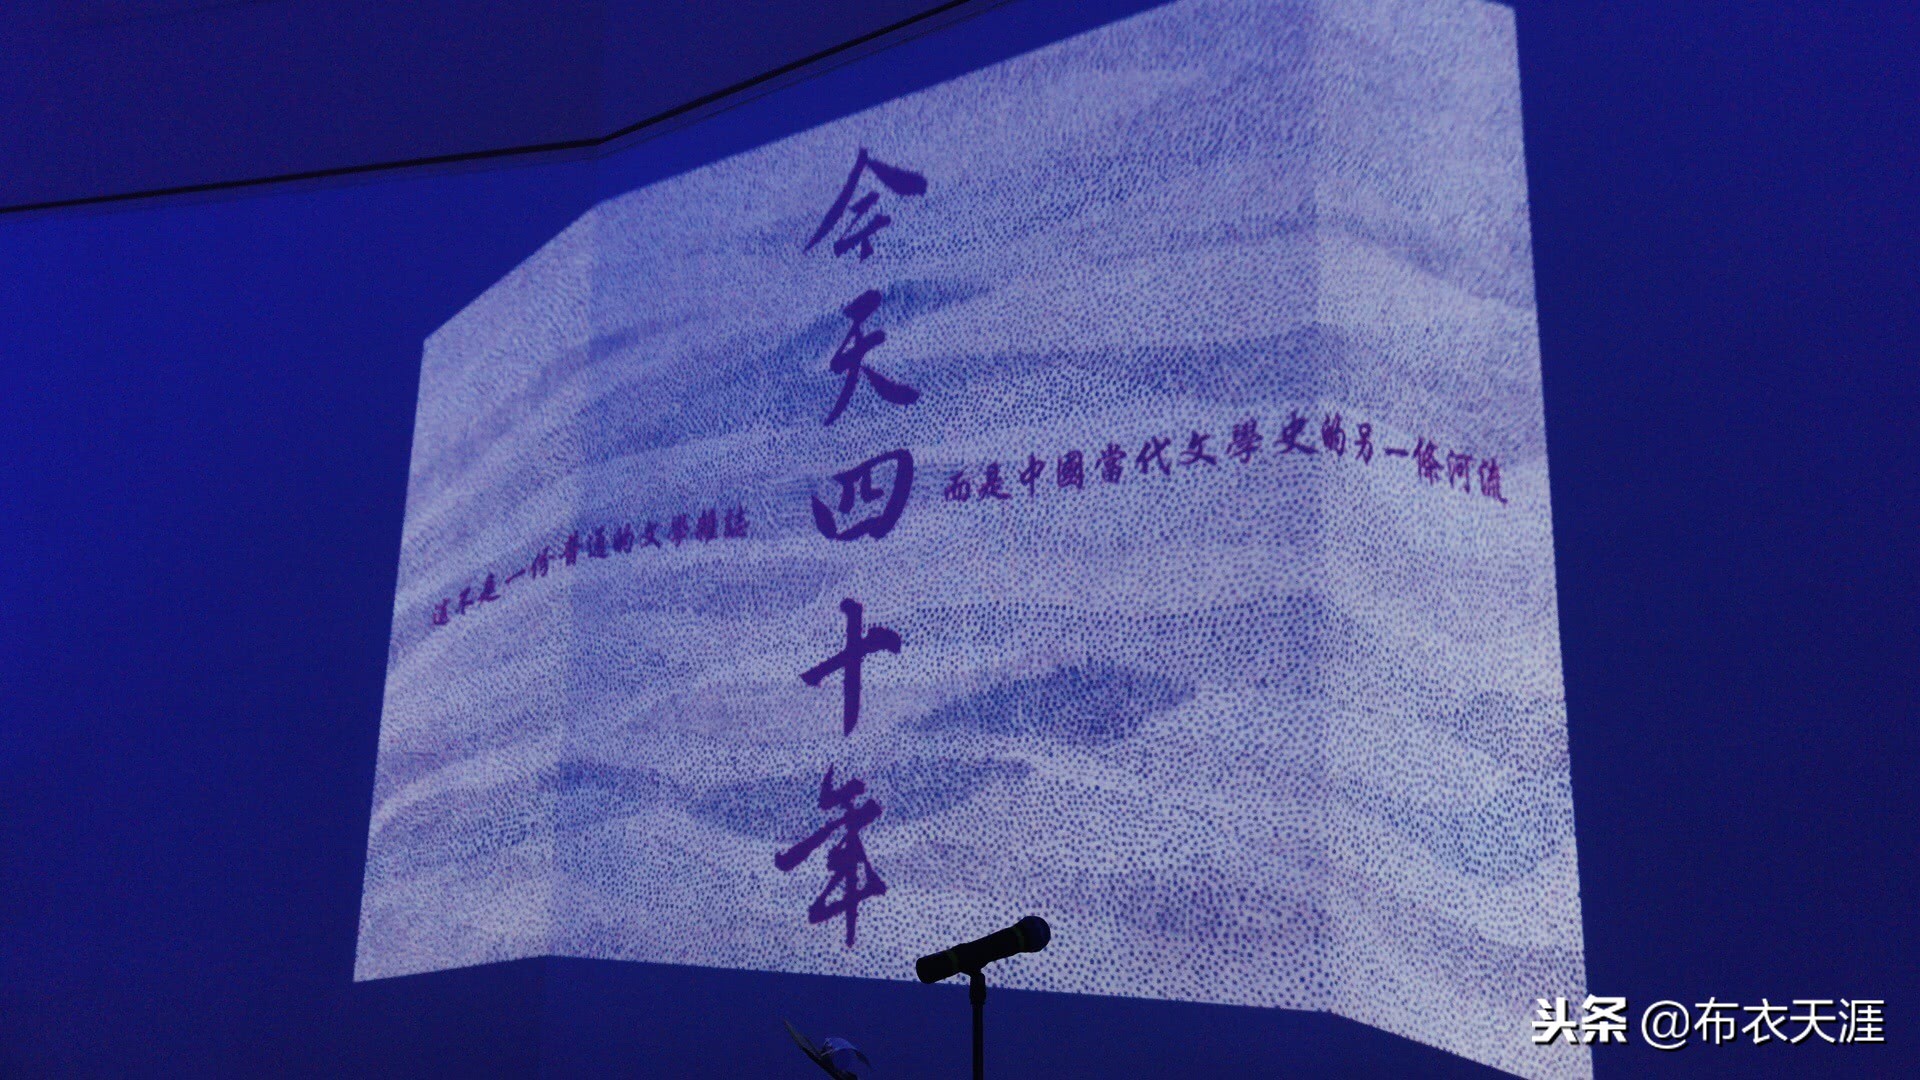 今天四十年
這不是一份普通的文學雜誌
而是中國當代文學史的另一條河流
头条 @布衣天涯